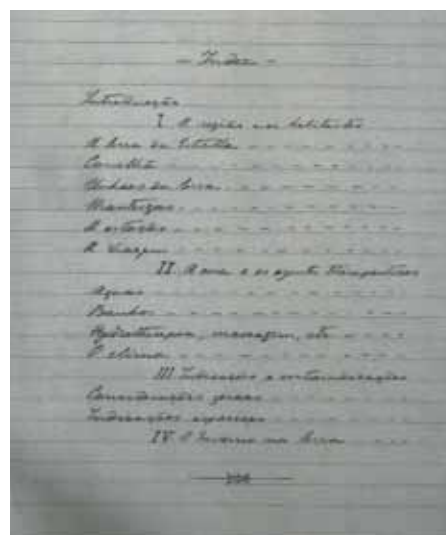 — Index —
Introdução
I A região e os habitantes
A Serra da Estrella
Covilhã
Unhaes da Serra
Manteigas
A estação
A viagem
II A cura e os agentes therapeuticos
Aguas
Banhos
Hydrotherapia, massagem, etc
O clima
III Indicações e contraindicações
Considerações geraes
Indicações especiaes
IV O Inverno na Serra